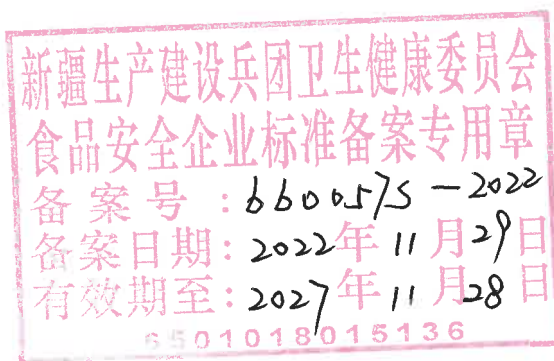 新疆生产建设兵团卫生健康委员会
食品安全企业标准备案专用章
备案号：660057S-2022
备案日期：2022年11月29日
有效期至：2027年11月28日
6501018015136